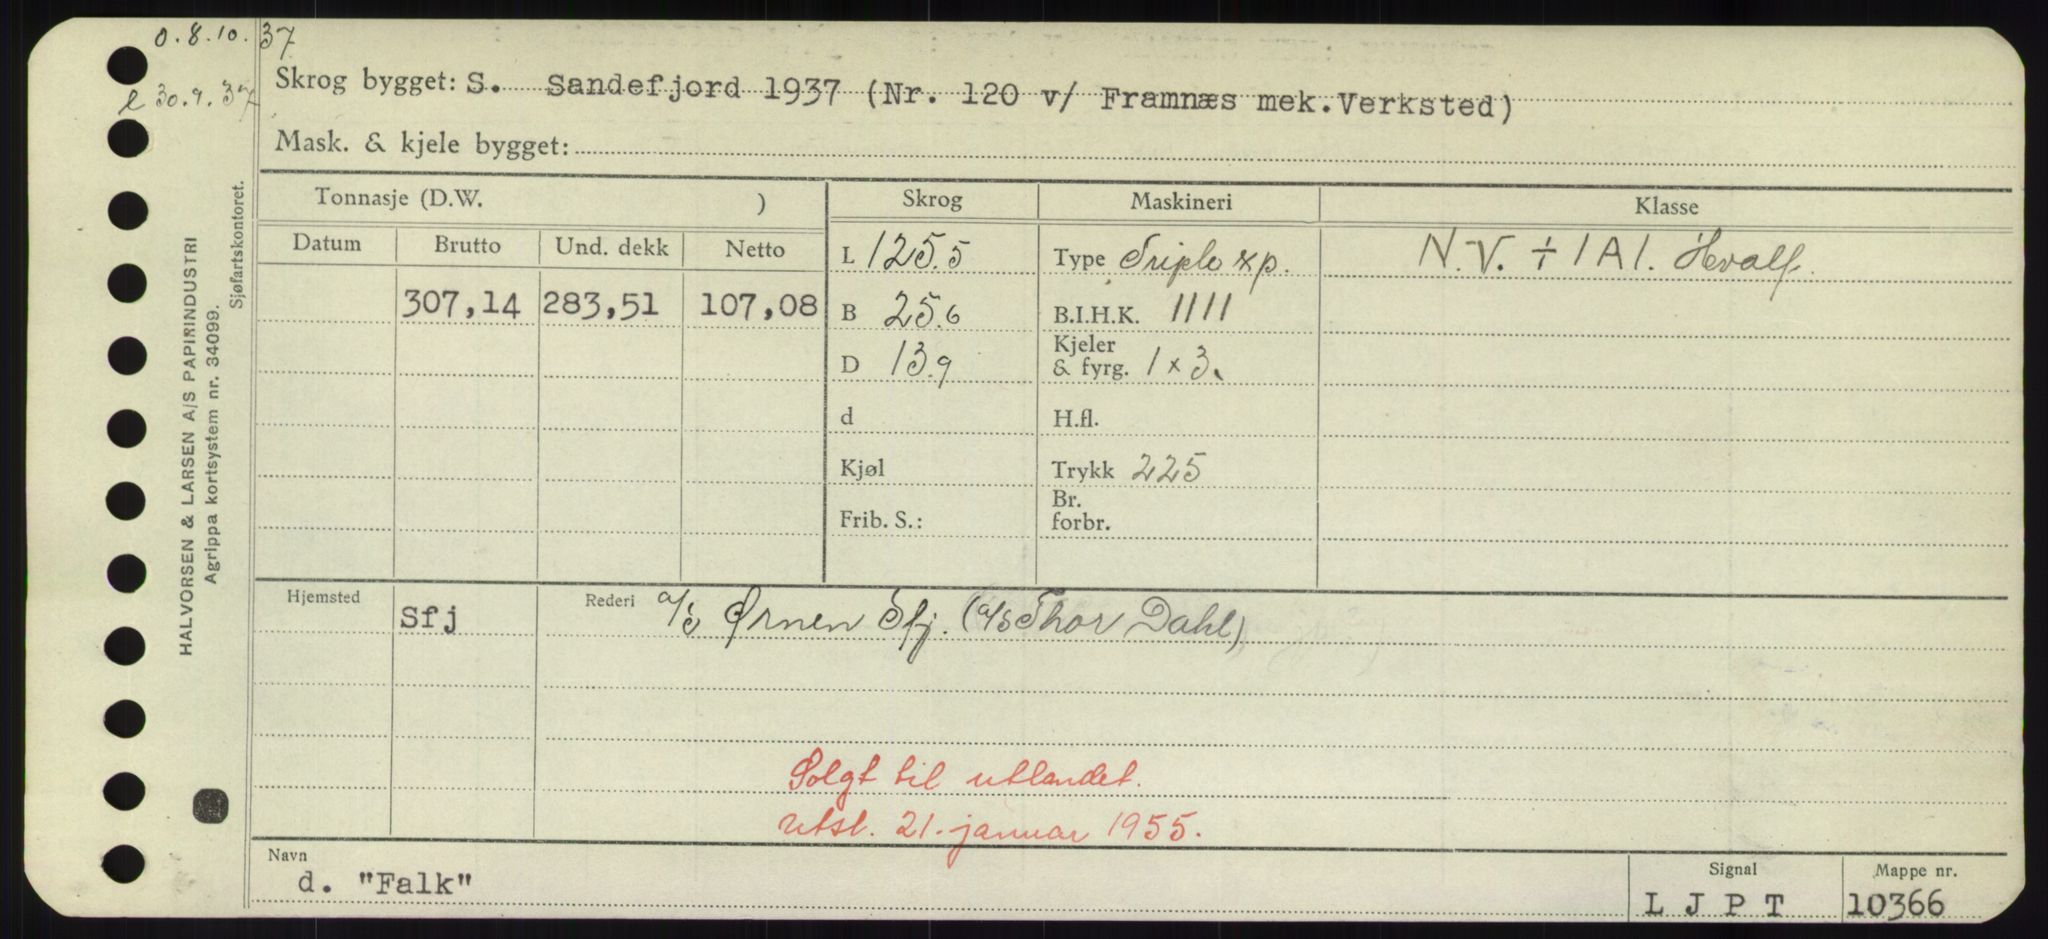 0.8.10.37
l 30.9.37
Skrog bygget: S. Sandefjord 1937 (Nr. 120 v/ Framnæs mek.Verksted)
Mask. & kjele bygget:
Tonnasje (D.W. ) Skrog Maskineri Klasse
Datum Brutto Und. dekk Netto
L 125.5 Type Triple xp. N.V. ÷ 1A1. Hvalf.
307,14 283,51 107,08 B 25.6 B.I.H.K. 1111
D 13.9 Kjeler & fyrg. 1 x 3.
d H.fl.
Kjøl Trykk 225
Frib. S.: Br. forbr.
Hjemsted Sfj Rederi a/s Ørnen Sfj. (a/s Thor Dahl)
Solgt til utlandet.
utsl. 21. januar 1955.
Navn d. "Falk" Signal L J P T Mappe nr. 10366
HALVORSEN & LARSEN A/S PAPIRINDUSTRI
Agrippa kortsystem nr. 34099.
Sjøfartskontoret.